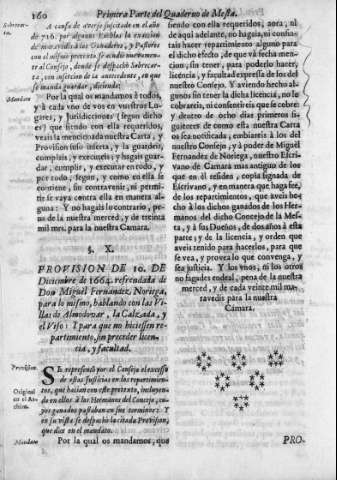 160
Primera Parte del Quaderno de Mesta.
Sobrecarta.
A causa de averse suscitado en el año
de 726. por algunos Pueblos la exaccion
de maravedis à los Ganaderos, y Pastores
con el mismo pretexto se acudiò nuevamente
al Consejo, donde se despachò Sobrecarta,
con insercion de la antecedente, en que
se manda guardar, diciendo;
Mandato
Por la qual os mandamos à todos,
y à cada vno de vos en vuestros Lugares,
y Jurisdicciones (segun dicho
es) que siendo con ella requeridos,
veais la mencionada nuestra Carta, y
Provision suso inserta, y la guardeis,
cumplais, y executeis; y hagais guardar,
cumplir, y executar en todo, y
por todo, segun, y como en ella se
contiene, sin contravenir, ni permitir
se vaya contra ella en manera alguna:
Y no hagais lo contrario, pena
de la nuestra merced, y de treinta
mil mrs. para la nuestra Camara.
§. X.
PROVISION DE 10. DE
Diciembre de 1664. refrendada de
Don Miguel Fernandez Noriega,
para lo mismo, hablando con las Villas
de Almodovar, la Calzada, y
el Viso: I para que no hiciessen repartimiento,
sin preceder licencia,
y facultad.
Provision.
Original en el Archivo.
SE representò por el Consejo el excesso
de estas Justicias en los repartimientos,
que hacian con este pretexto, incluyendo
en ellos à los Hermanos del Concejo, cuyos
ganados pastaban en sus terminos: Y
en su vista se despachò la citada Provision,
que dice en el mandato.
Mandato
Por la qual os mandamos, que
siendo con ella requeridos, aora, ni
de aqui adelante, no hagais, ni consintais
hacer repartimiento alguno para
el dicho efecto, de que và fecha mencion,
sin tener, para poderlo hacer,
licencia, y facultad expressa de los del
nuestro Consejo. Y aviendo hecho algunos
sin tener la dicha licencia, no lo
cobrareis, ni consentireis que se cobre;
y dentro de ocho dias primeros siguientes
de como esta nuestra Carta
os sea notificada, embiareis à los del
nuestro Consejo, y à poder de Miguèl
Fernandez de Noriega, nuestro Escrivano
de Camara mas antiguo de los
que en èl residen, copia signada de
Escrivano, y en manera que haga fee,
de los repartimientos, que aveis hecho
à los dichos ganados de los Hermanos
del dicho Concejo de la Mesta,
y à sus Dueños, de dos años à esta
parte; y de la licencia, y orden que
aveis tenido para hacerlos, para que
se vea, y provea lo que convenga, y
sea justicia. Y los vnos, ni los otros
no fagades ende al, pena de la nuestra
merced, y de cada veinte mil maravedis
para la nuestra
Camara.
PRO-